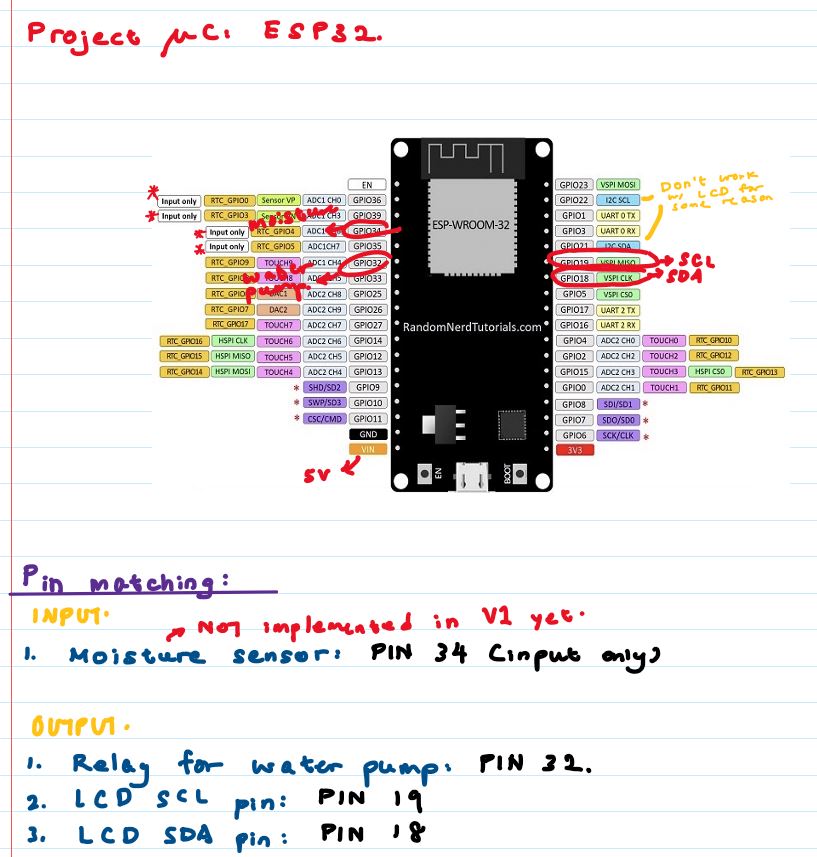 Project μC: ESP32.
EN
Input only RTC_GPIO0 Sensor VP ADC1 CH0 GPIO36
Input only RTC_GPIO3 CH3 GPIO39
moisture
Input only RTC_GPIO4 GPIO34
Input only RTC_GPIO5 ADC1CH7 GPIO35
RTC_GPIO9 TOUCH9 ADC1 CH4 GPIO32
GPIO33
water pump.
GPIO25 ADC2 CH8 DAC1
RTC_GPIO7 DAC2 ADC2 CH9 GPIO26
RTC_GPIO17 TOUCH7 ADC2 CH7 GPIO27
RTC_GPIO16 HSPI CLK TOUCH6 ADC2 CH6 GPIO14
RTC_GPIO15 HSPI MISO TOUCH5 ADC2 CH5 GPIO12
RTC_GPIO14 HSPI MOSI TOUCH4 ADC2 CH4 GPIO13
* SHD/SD2 GPIO9
* SWP/SD3 GPIO10
* CSC/CMD GPIO11
GND
VIN
5V
ESP-WROOM-32
RandomNerdTutorials.com
EN
BOOT
GPIO23 VSPI MOSI
GPIO22 I2C SCL
GPIO1 UART 0 TX
GPIO3 UART 0 RX
GPIO21 I2C SDA
Don't work
w/ LCD for
some reason
GPIO19 VSPI MISO SCL
GPIO18 VSPI CLK SDA
GPIO5 VSPI CS0
GPIO17 UART 2 TX
GPIO16 UART 2 RX
GPIO4 ADC2 CH0 TOUCH0 RTC_GPIO10
GPIO2 ADC2 CH2 TOUCH2 RTC_GPIO12
GPIO15 ADC2 CH3 TOUCH3 HSPI CS0 RTC_GPIO13
GPIO0 ADC2 CH1 TOUCH1 RTC_GPIO11
GPIO8 SDI/SD1 *
GPIO7 SDO/SD0 *
GPIO6 SCK/CLK *
3V3
Pin matching:
INPUT.
Not implemented in V1 yet.
1. Moisture sensor: PIN 34 (input only)
OUTPUT.
1. Relay for water pump: PIN 32.
2. LCD SCL pin: PIN 19
3. LCD SDA pin: PIN 18